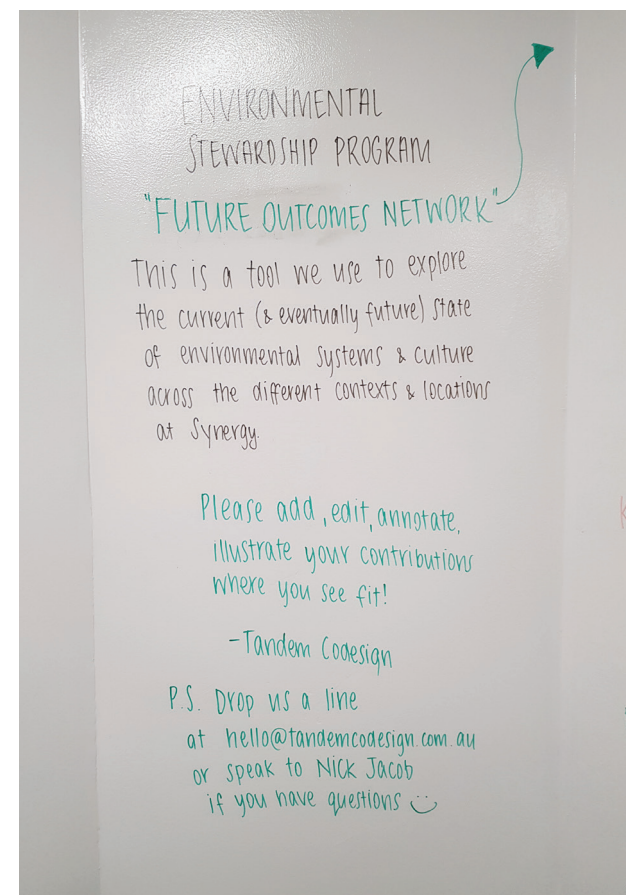 ENVIRONMENTAL
STEWARDSHIP PROGRAM
"FUTURE OUTCOMES NETWORK"
This is a tool we use to explore
the current (& eventually future) state
of environmental systems & culture
across the different contexts & locations
at Synergy.
Please add, edit, annotate,
illustrate your contributions
where you see fit!
-Tandem Codesign
P.S. Drop us a line
at hello@tandemcodesign.com.au
or speak to Nick Jacob
if you have questions